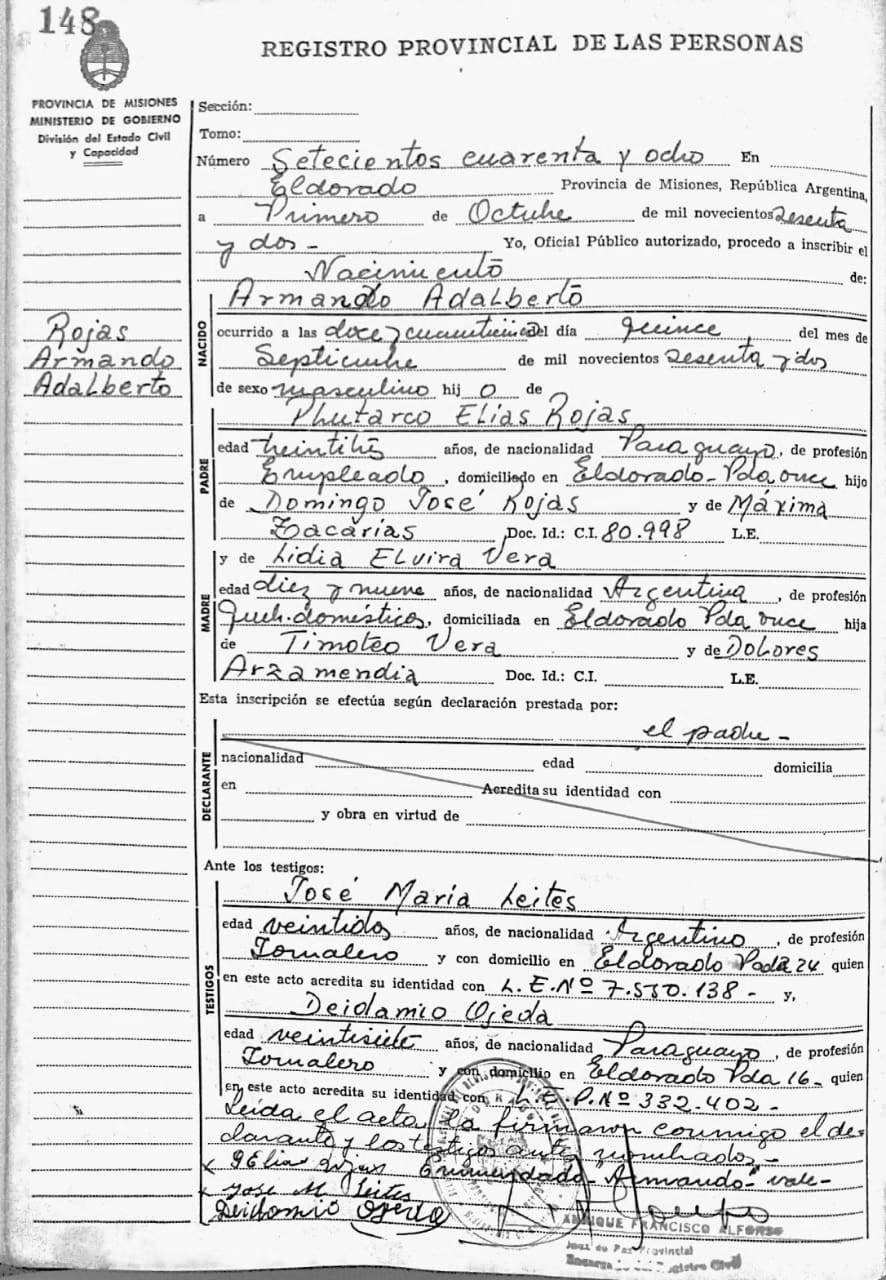 148
REGISTRO PROVINCIAL DE LAS PERSONAS
PROVINCIA DE MISIONES
MINISTERIO DE GOBIERNO
División del Estado Civil
y Capacidad
Rojas
Armando
Adalberto
Sección:
Tomo:
Número Setecientos cuarenta y ocho En
Eldorado Provincia de Misiones, República Argentina,
a Primero de Octubre de mil novecientos sesenta
y dos - Yo, Oficial Público autorizado, procedo a inscribir el
Nacimiento de:
NACIDO
Armando Adalberto
ocurrido a las doce y cuarenticinco del día quince del mes de
Septiembre de mil novecientos sesenta y dos
de sexo masculino hij o de
PADRE
Phutarco Elias Rojas
edad treintitrés años, de nacionalidad Paraguayo, de profesión
Empleado, domiciliado en Eldorado - Pda once hijo
de Domingo José Rojas y de Máxima
Zacarías Doc. Id.: C.I. 80.998 L.E.
MADRE
y de Lidia Elvira Vera
edad diez y nueve años, de nacionalidad Argentina, de profesión
Queh. domésticos, domiciliada en Eldorado Pda once hija
de Timoteo Vera y de Dolores
Arzamendia Doc. Id.: C.I. L.E.
Esta inscripción se efectúa según declaración prestada por:
el padre -
DECLARANTE
nacionalidad edad domicilia
en Acredita su identidad con
y obra en virtud de
Ante los testigos:
TESTIGOS
José María Leites
edad veintidos años, de nacionalidad Argentino, de profesión
Jornalero y con domicilio en Eldorado 24 quien
en este acto acredita su identidad con L.E. Nº 7.550.138 - y,
Deidamio Ojeda
edad veintisiete años, de nacionalidad Paraguayo, de profesión
Jornalero y con domicilio en Eldorado Pda 16 - quien
en este acto acredita su identidad con P. Nº 332.402 -
Leída el acta, la firmaron conmigo el de-
clarante y los testigos ante nombrados -
Enmendado - "Armando" - vale -
Jose M Leites
Deidamio Ojeda
ENRIQUE FRANCISCO ALFONSO
Juez de Paz Provincial
Registro Civil